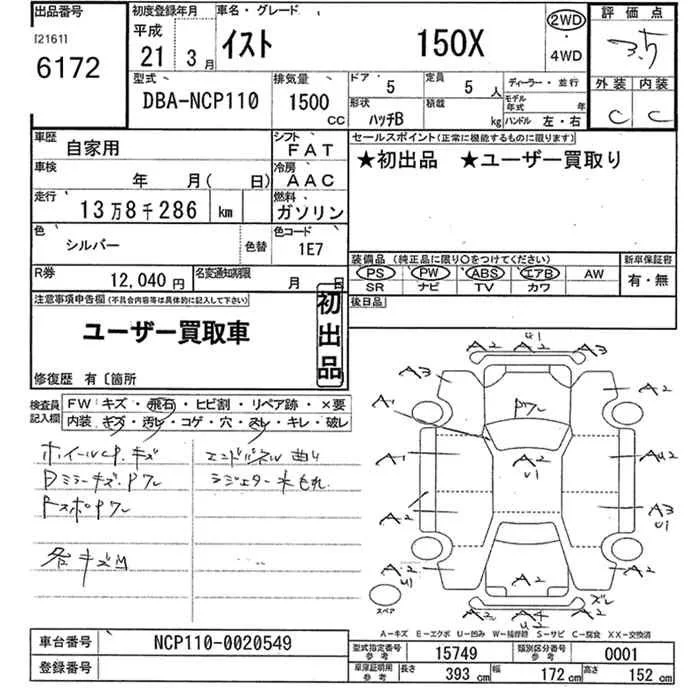 出品番号 初度登録年月 車名・グレード 2WD 評価点
[2161] 平成 イスト 150X ・ 3.5
6172 21 3月 4WD
型式 排気量 ドア 5 定員 5人 ディーラー・並行 外装 内装
DBA-NCP110 1500cc 形状 ハッチB 積載 kg モデル年式 年 C C
ハンドル 左・右
車歴 自家用 シフト FAT セールスポイント(正常に機能するものに限ります)
車検 年 月( 日) 冷房 AAC ★初出品 ★ユーザー買取り
走行 13万8千286 km 燃料 ガソリン
色 シルバー 色替 色コード 1E7
装備品 (純正品に限り○をつけてください) 新車保証書
PS PW ABS エアB AW 有・無
SR ナビ TV カワ
R券 12,040円 名変通知期限 月 日
後日品
注意事項申告欄(不具合内容等は具体的に記入して下さい) 初出品
ユーザー買取車
修復歴 有〔箇所
検査員記入欄 FW キズ・飛石・ヒビ割・リペア跡・×要
内装 キズ・汚レ・コゲ・穴・スレ・キレ・破レ
ホイールCP.キズ エンドパネル曲り
Dミラーキズ.Pワレ ラジエター水もれ
FスポPワレ
各キズM
A2 U1 A2
A3 A3
A2 A2
A1 Pワレ
A2 U1
A1 AU2
A2 A3 U1
A2 U1 A2 A2
ズレ
A3 A4 U2 A2
スペア
A-キズ E-エクボ U-凹み W-補修跡 S-サビ C-腐食 XX-交換済
車台番号 NCP110-0020549 型式指定番号 参考 15749 類別区分番号 参考 0001
登録番号 車庫証明用 参考 長さ 393cm 幅 172cm 高さ 152cm